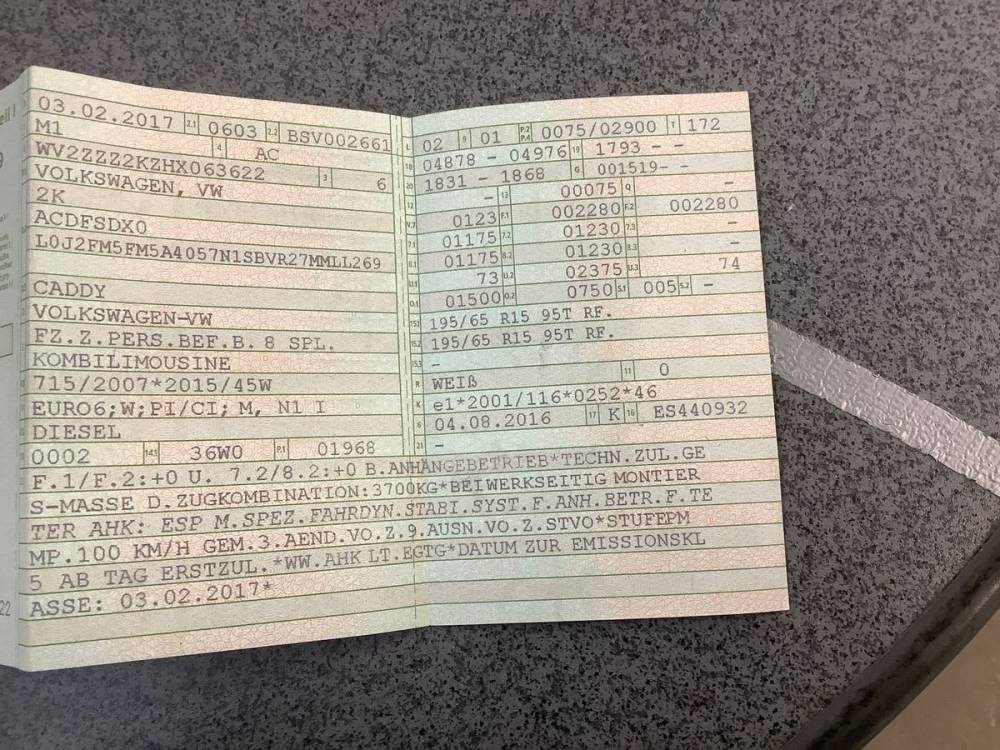 03.02.2017 2.1 0603 2.2 BSV002661
M1 4 AC
WV2ZZZ2KZHX063622 3 6
VOLKSWAGEN, VW
2K
ACDFSDX0
L0J2FM5FM5A4057N1SBVR27MMLL269
CADDY
VOLKSWAGEN-VW
FZ.Z.PERS.BEF.B. 8 SPL.
KOMBILIMOUSINE
715/2007*2015/45W
EURO6;W;PI/CI; M, N1 I
DIESEL
0002 14.1 36W0 P.1 01968
L 02 9 01 P.2 P.4 0075/02900 T 172
18 04878 - 04976 19 1793 - -
20 1831 - 1868 G 001519-
12 - 13 00075 Q -
V.7 0123 F.1 002280 F.2 002280
7.1 01175 7.2 01230 7.3 -
8.1 01175 8.2 01230 8.3 -
U.1 73 U.2 02375 U.3 74
O.1 01500 O.2 0750 S.1 005 S.2 -
15.1 195/65 R15 95T RF.
15.2 195/65 R15 95T RF.
15.3 -
R WEIß 11 0
K e1*2001/116*0252*46
6 04.08.2016 17 K 16 ES440932
21 -
F.1/F.2:+0 U. 7.2/8.2:+0 B.ANHÄNGEBETRIEB*TECHN.ZUL.GE
S-MASSE D.ZUGKOMBINATION:3700KG*BEIWERKSEITIG MONTIER
TER AHK: ESP M.SPEZ.FAHRDYN.STABI.SYST.F.ANH.BETR.F.TE
MP.100 KM/H GEM.3.AEND.VO.Z.9.AUSN.VO.Z.STVO*STUFEPM
5 AB TAG ERSTZUL.*WW.AHK LT.EGTG*DATUM ZUR EMISSIONSKL
ASSE: 03.02.2017*
22